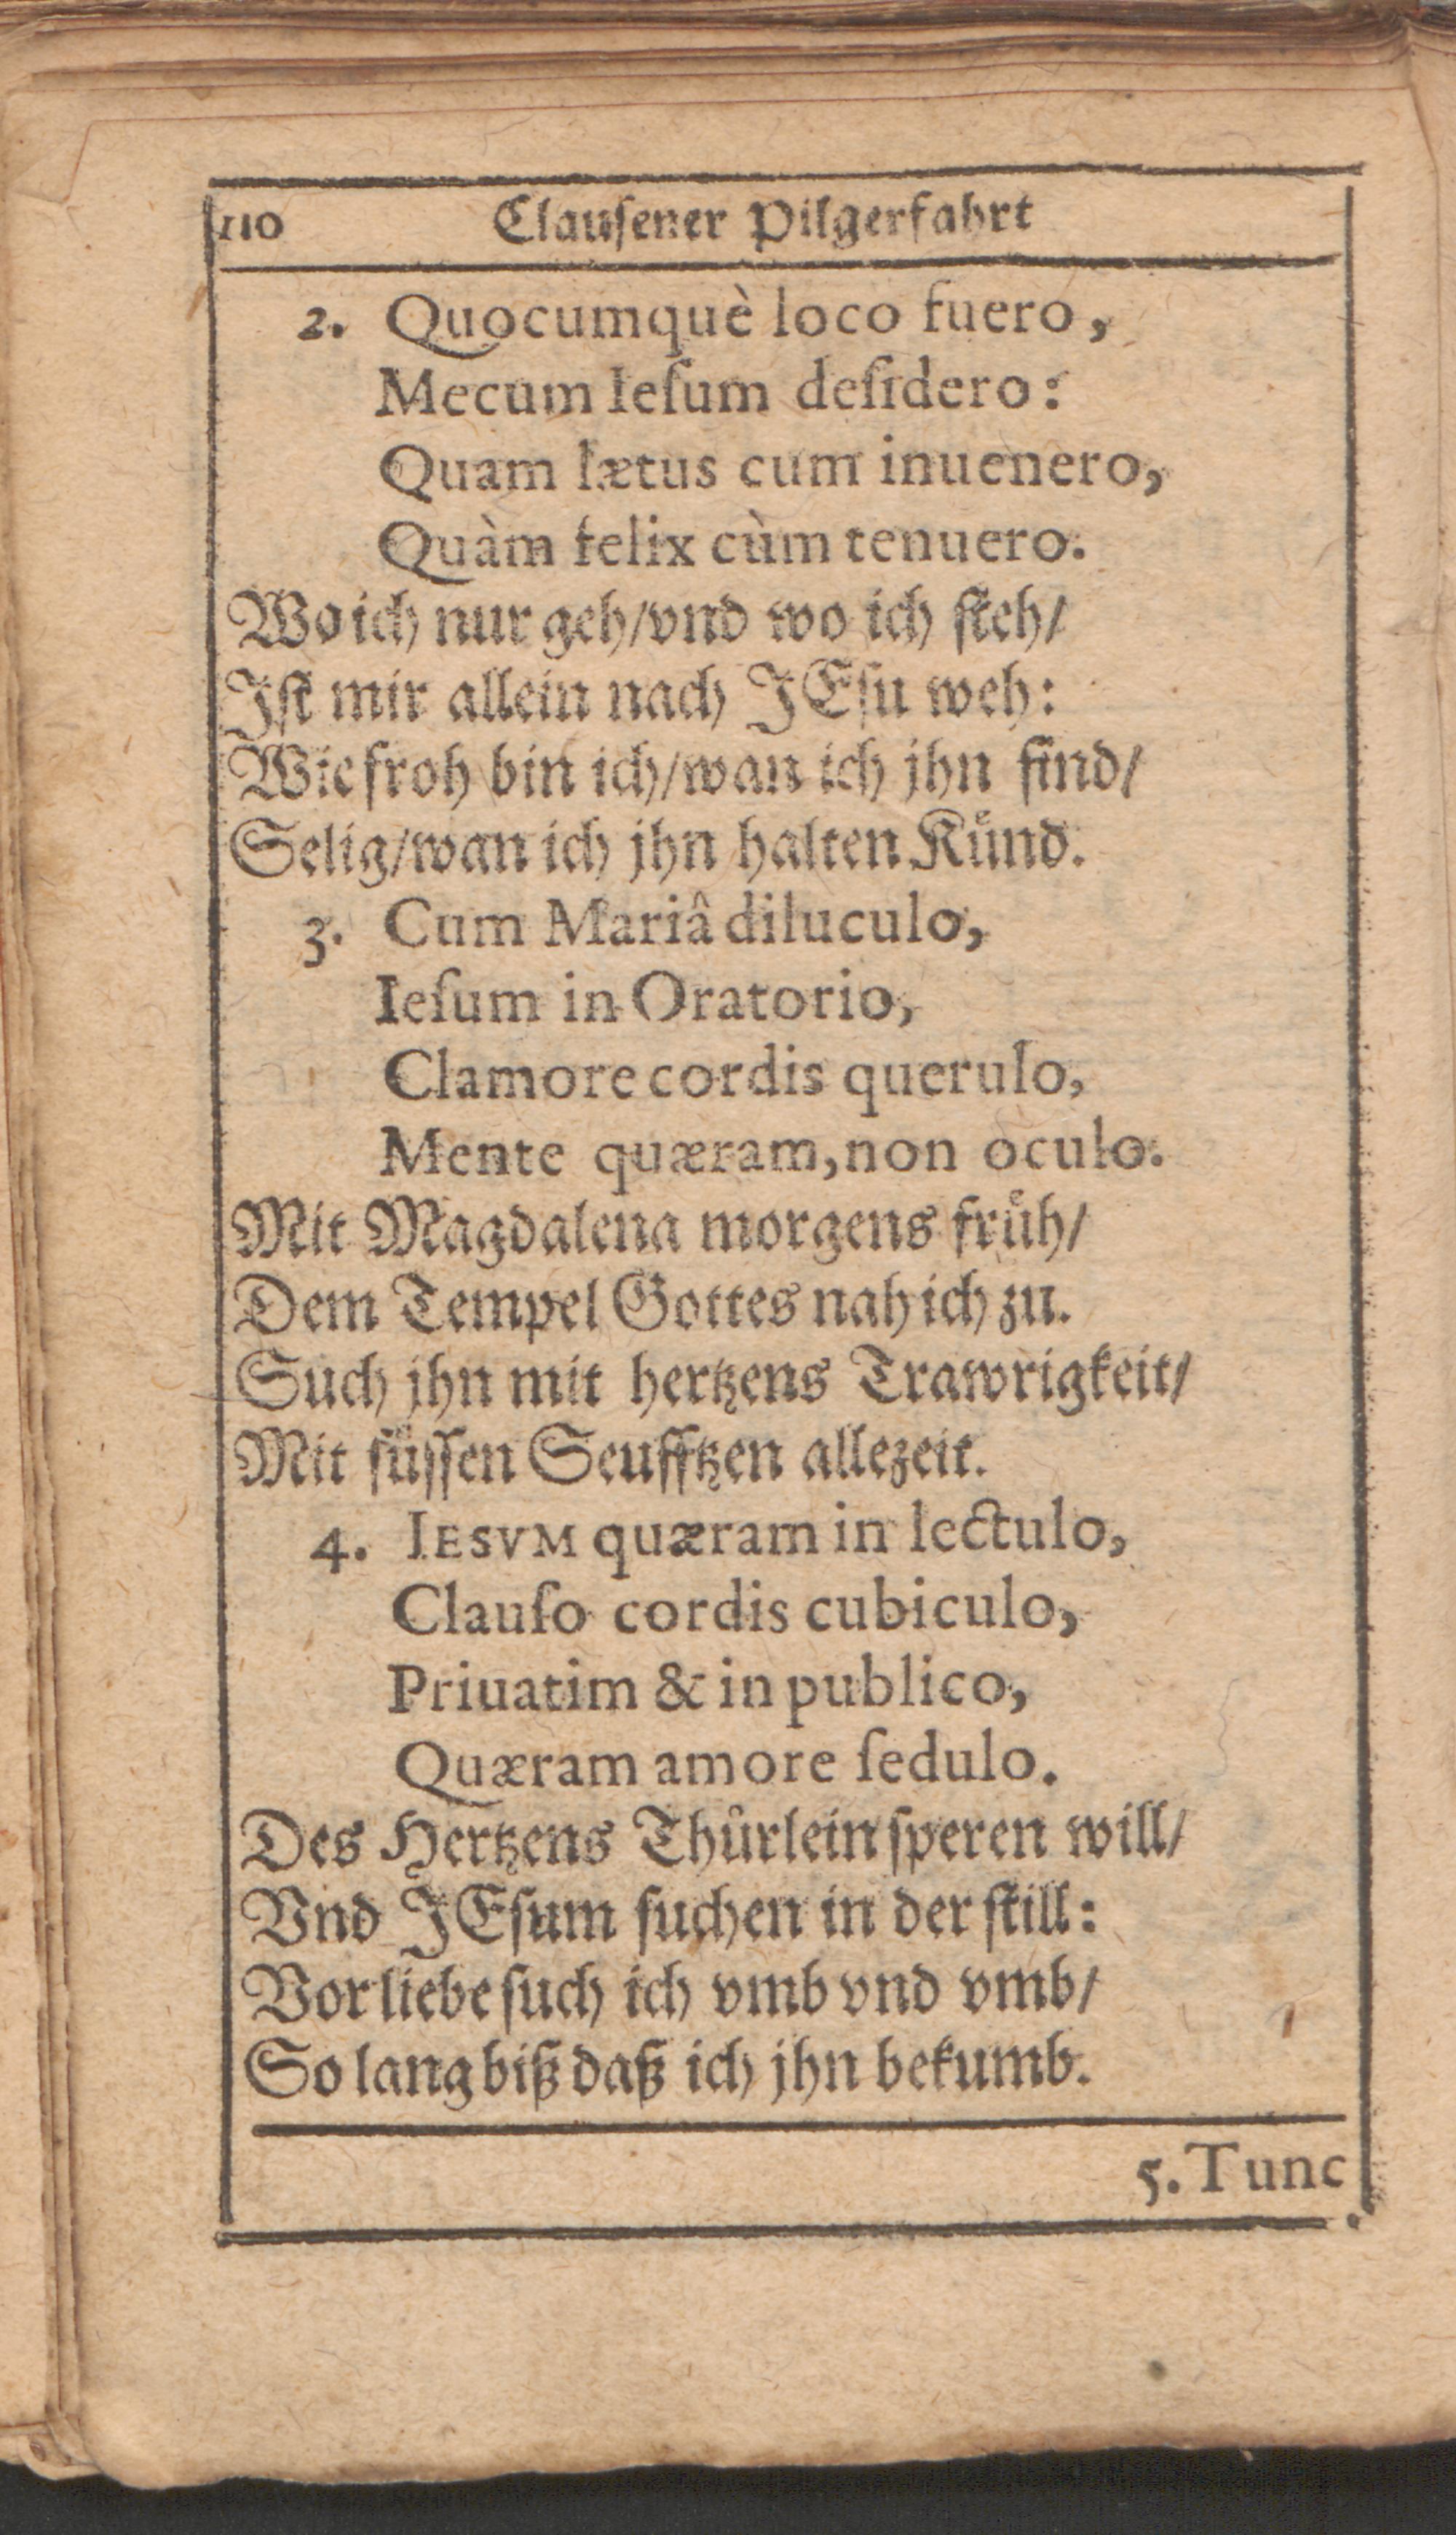 110 Clauſener Pilgerfahrt
2. Quocumquè loco fuero,
Mecum Ieſum deſidero:
Quam lætus cum inuenero,
Quàm felix cùm tenuero.
Wo ich nur geh/vnd wo ich ſteh/
Iſt mir allein nach JEſu weh:
Wie froh bin ich/wan ich jhn find/
Selig/wan ich jhn halten Kuͤnd.
3. Cum Mariâ diluculo,
Ieſum in Oratorio,
Clamore cordis querulo,
Mente quæram, non oculo.
Mit Magdalena morgens fruͤh/
Dem Tempel Gottes nah ich zu.
Such jhn mit hertzens Trawrigkeit/
Mit ſuͤſſen Seufftzen allezeit.
4. IESVM quæram in lectulo,
Clauſo cordis cubiculo,
Priuatim & in publico,
Quæram amore ſedulo.
Des Hertzens Thuͤrlein ſperen will/
Vnd JEſum ſuchen in der ſtill:
Vor liebe ſuch ich vmb vnd vmb/
So lang biß daß ich jhn bekumb.
5. Tunc